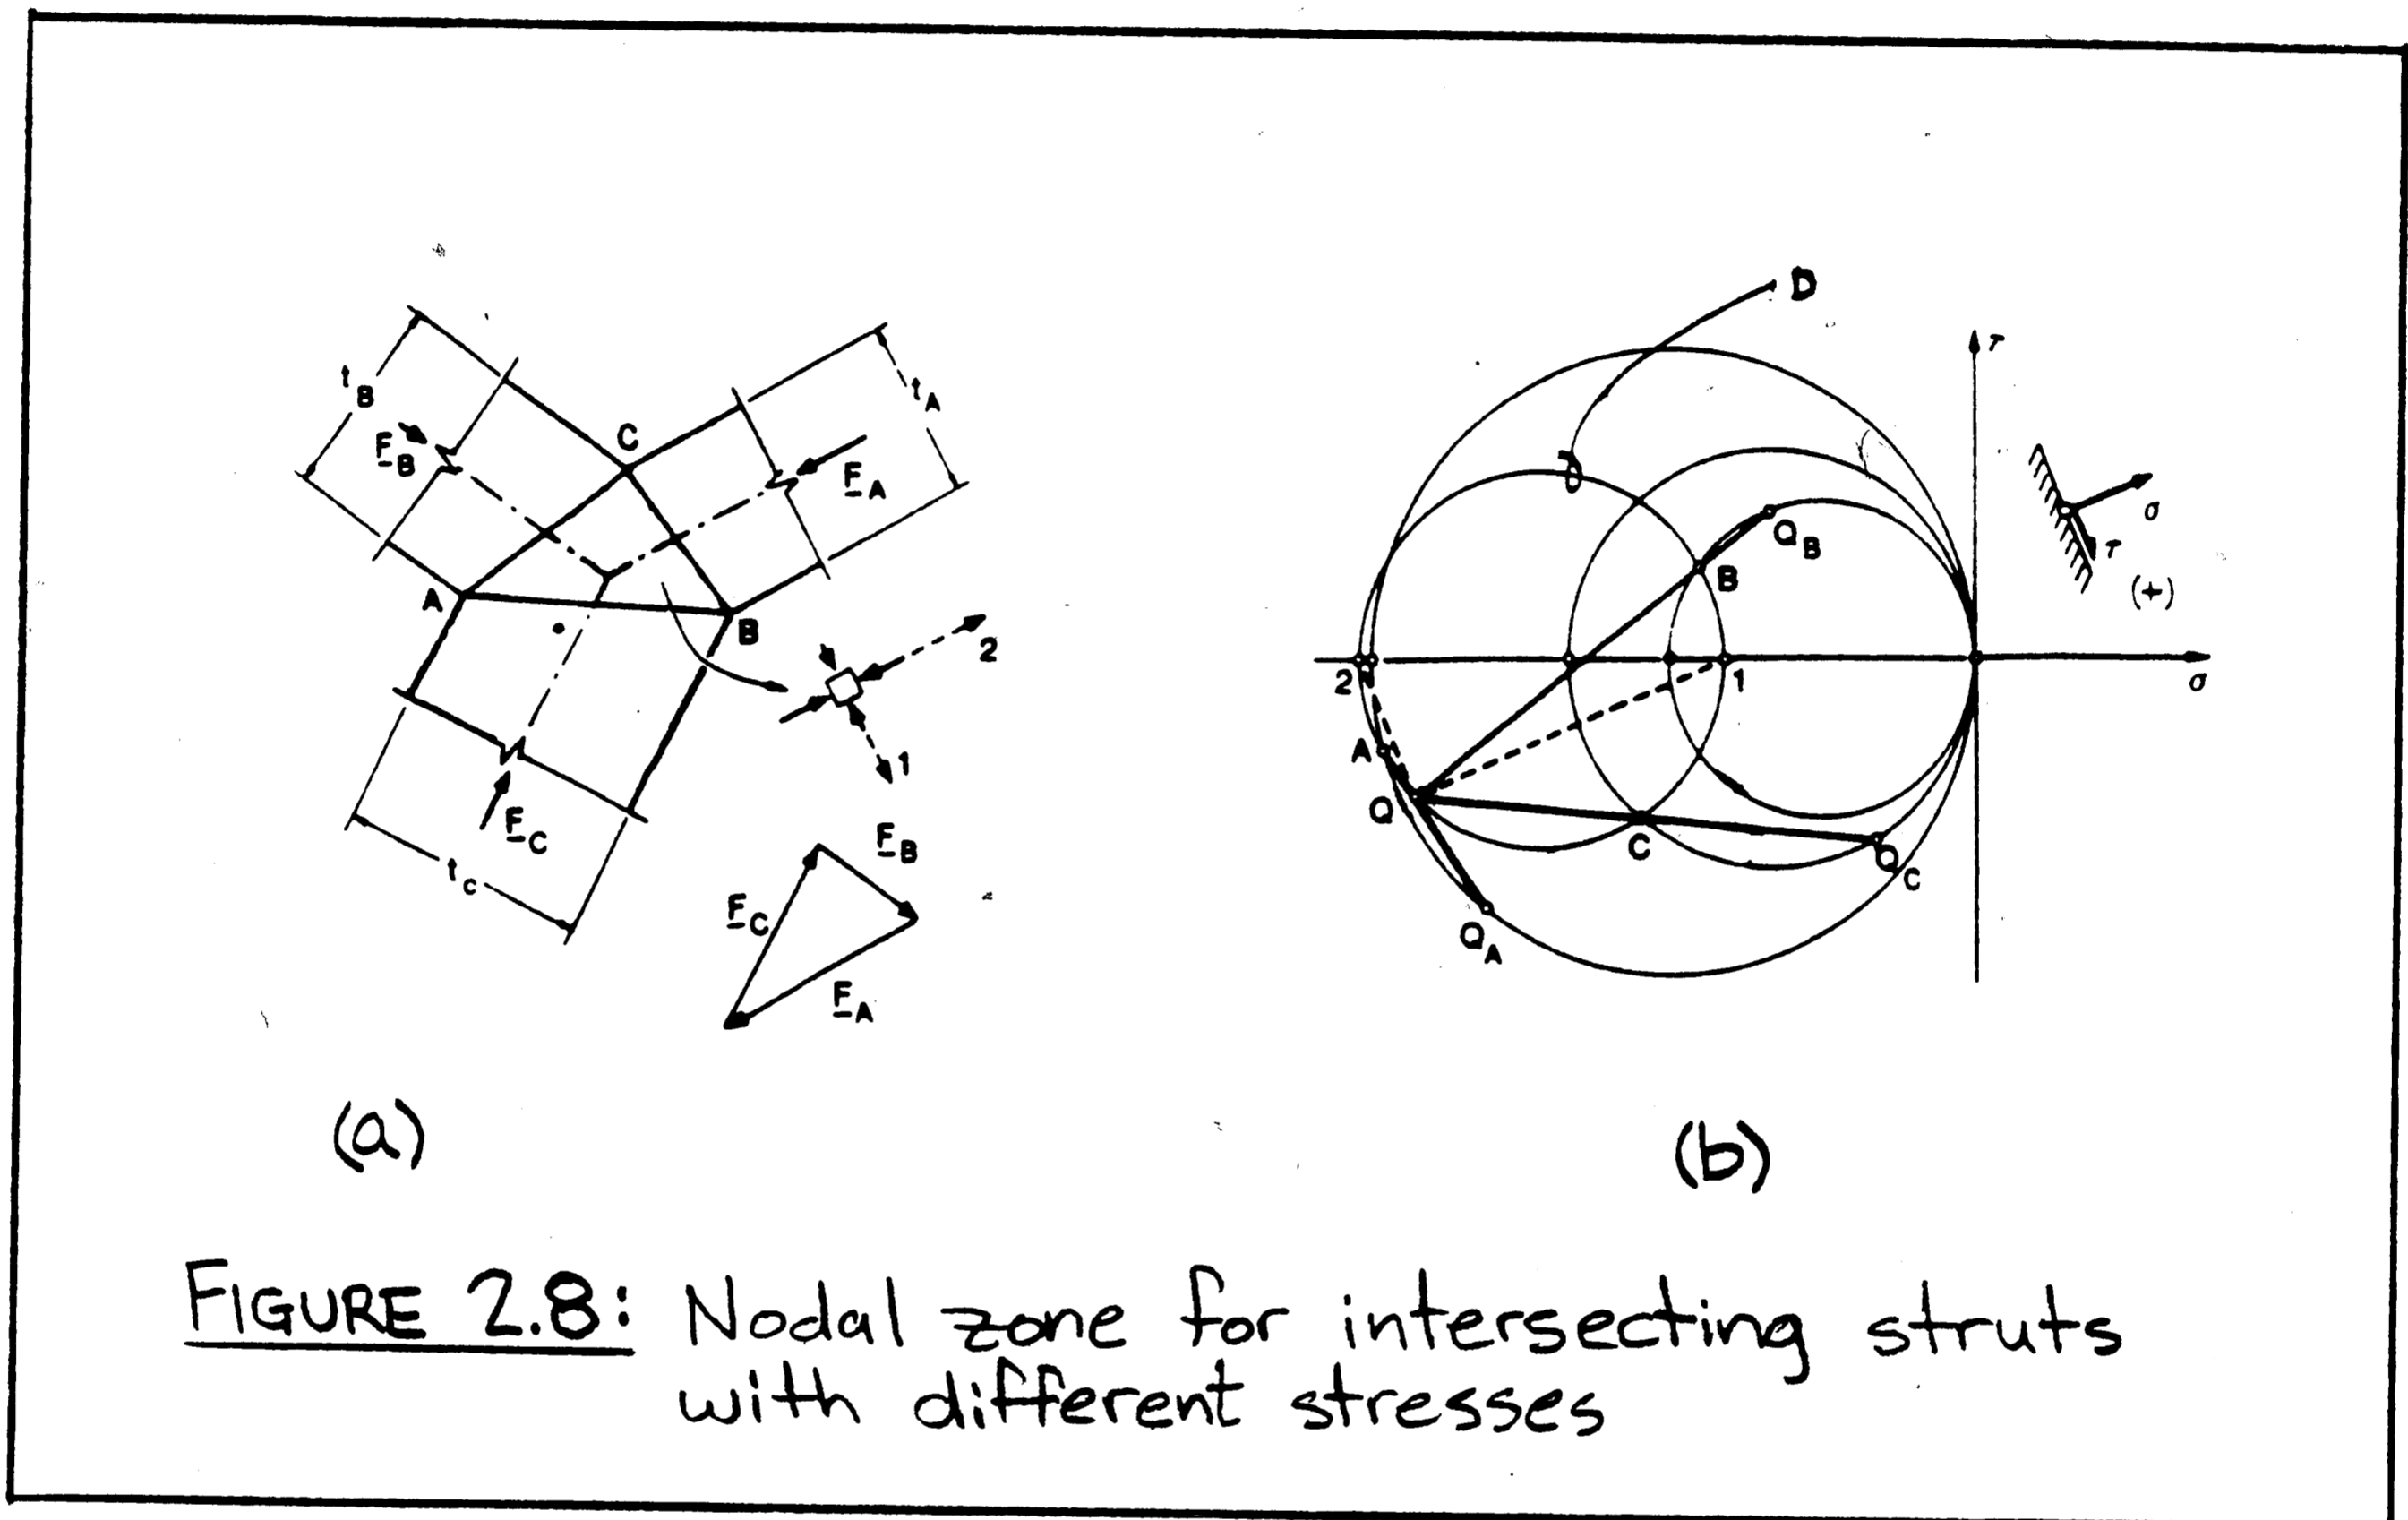 t_B
F_B
C
t_A
F_A
A
B
2
1
F_C
t_C
F_B
F_C
F_A
D
τ
Q_B
B
σ
τ
(+)
2
1
σ
A
Q
C
Q_C
Q_A
(a)
(b)
FIGURE 2.8: Nodal zone for intersecting struts
with different stresses